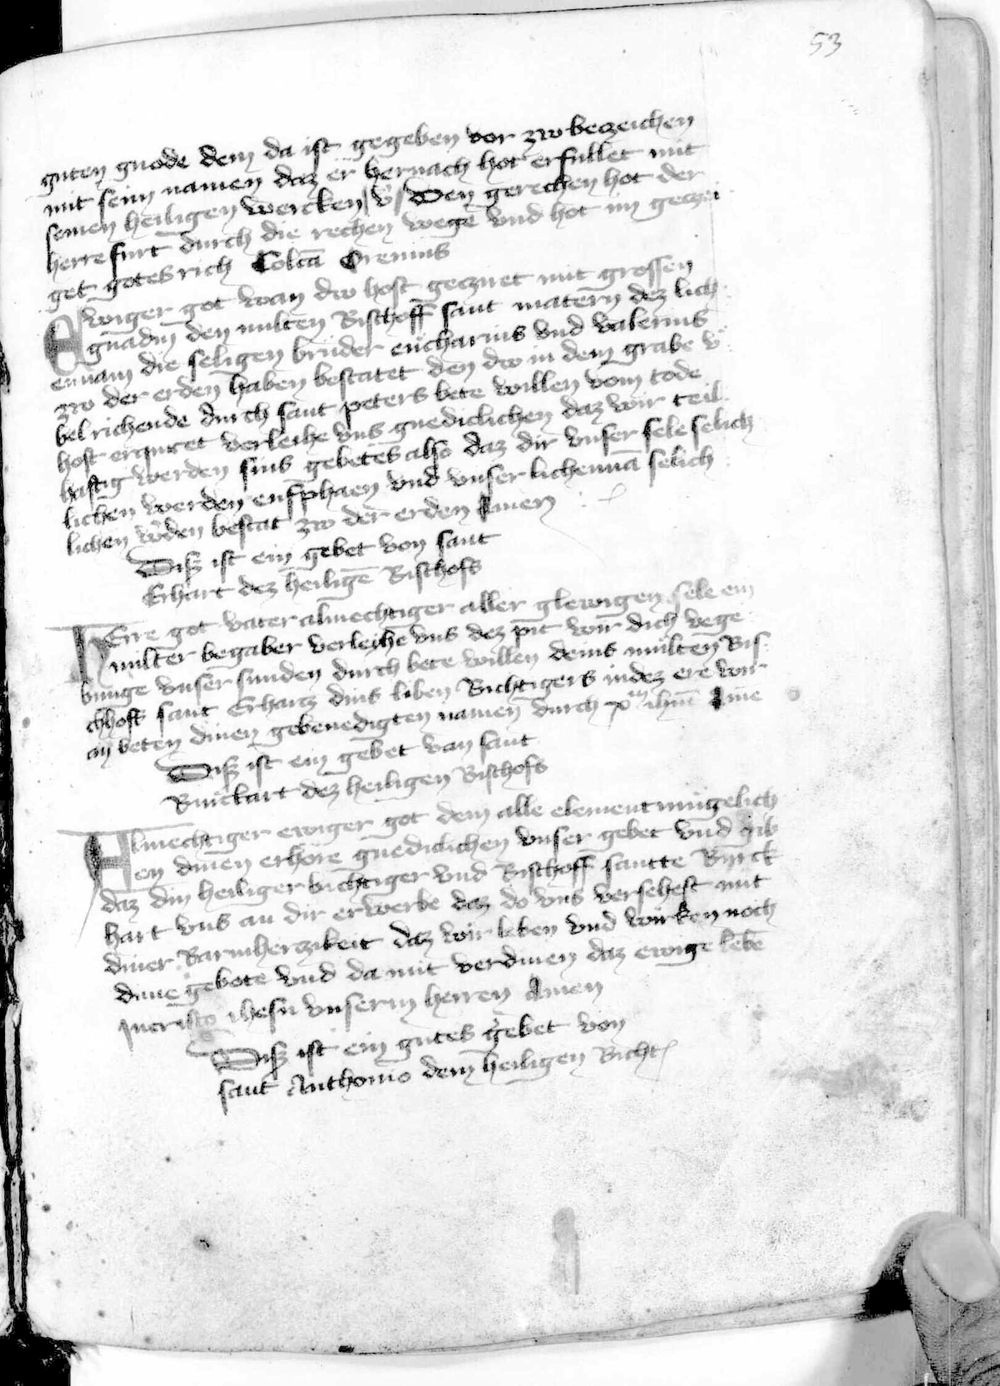 53
guten gnode dem da ist gegeben vor zw bezeichen
mit seim namen daz er hernach hot erfullet mit
seinen heiligen wercken v̉s Den gerechen hot der
herre furt durch die rechen wege vnd hot im geczei
get gotes rich Colcā Oremus
Ewiger got wan dw host geczuet mit grossen
gnadin den milten Bischoff sant matern dez lich
ennam die seligen brüder eucharius vnd valerius
zw der erden haben bestatet den dw in dem grabe v̉
bel richende durch sant peters bete willen vom tode
host erquicet verleihe vns gnediclichen daz wir teil
haftig werden sins gebetes also daz dir vnser sele selich
lichen werden enfphaen vnd vnser lichennā selich
lichen w̉den bestat zw der erden Amen
Disz ist ein gebet von sant
Erhart dez heiligē Bischofs
HErre got vater almechtiger aller glewigen sele ein
milter begaber verleihe vns dez pit wir dich vege
bunge vnser sunden durch bete willen deins milten Bis
choffs sant Erhartz dins liben Bichtigers in dez ere wir
an beten dinen gebenedigten namen durch xp̄m ihm̄ Ame
Disz ist ein gebet van sant
Burckart dez heiligen Bischofs
Almechtiger ewiger got dem alle element mügelich
en dinen erhöre gnediclichen vnser gebet vnd gib
daz din heiliger bichtiger vnd Bischoff santte Burck
hart vns an dir erwerbe daz do vns versehest mit
diner Barmherzikeit daz wir leben vnd würken noch
dine gebote vnd da mit verdinen daz ewige lebē
In cristo ihesu vnserm herren Amen
Disz ist ein gutes gebet von
sant Anthonio dem heiligen Bicht